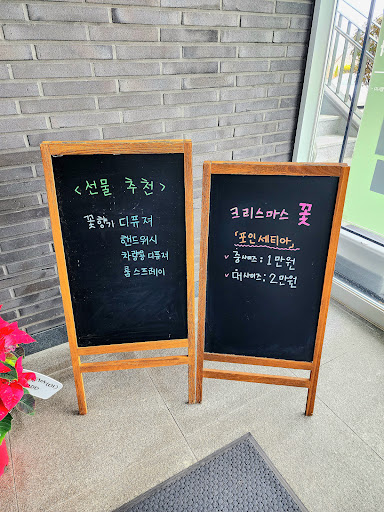 <선물 추천>
꽃향기 디퓨져
핸드워시
차량용 디퓨져
룸 스프레이
크리스마스 꽃
「포인세티아」
✓ 중사이즈 : 1만원
✓ 대사이즈 : 2만원